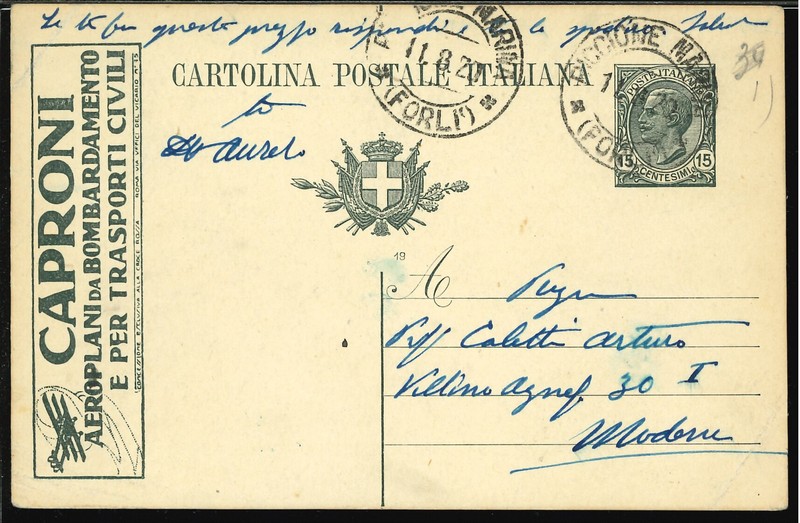 Se ti fa questo prezzo rispondi e lo
CARTOLINA POSTALE ITALIANA
RICCIONE MARINA
11.8.20
(FORLI')
RICCIONE MAR
(FO
POSTE ITALIANE
15 15
CENTESIMI
39
1)
to
Aurelio
CAPRONI
AEROPLANI DA BOMBARDAMENTO
E PER TRASPORTI CIVILI
CONCESSIONE ESCLUSIVA ALLA CROCE ROSSA ROMA VIA UFFICI DEL VICARIO N° 15
19
A
Caletti Arturo
Villino Agnes 30 I
Modena